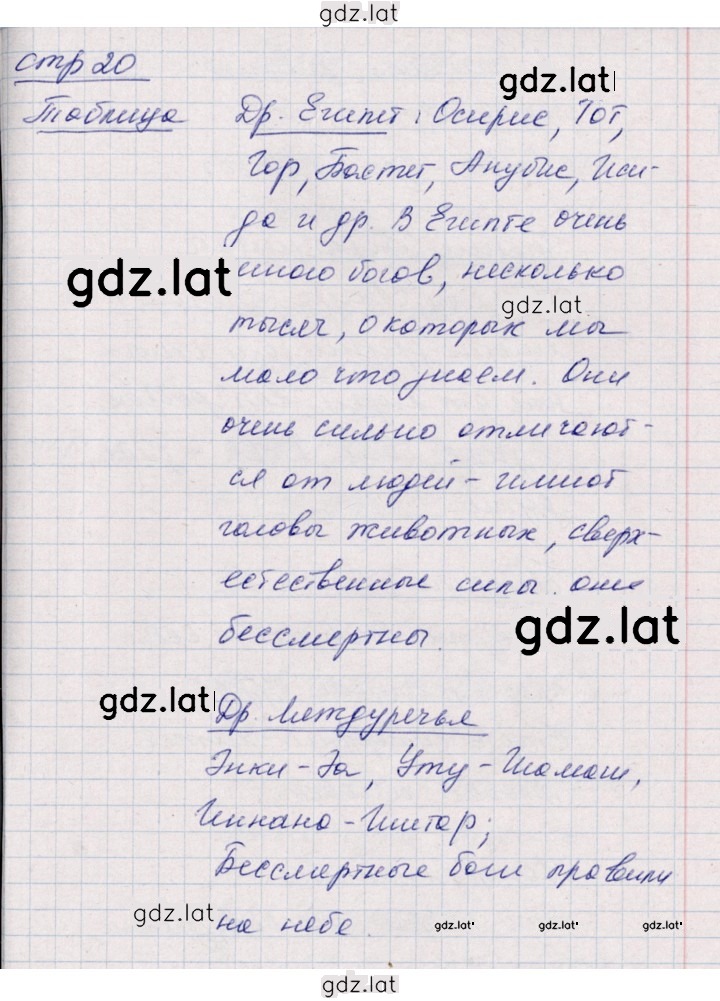 gdz.lat
стр 20
gdz.lat
Таблица Др. Египет: Осирис, Тот,
Гор, Бастет, Анубис, Иси-
да и др. В Египте очень
много богов, несколько
gdz.lat
gdz.lat
тысяч, о которых мы
мало что знаем. Они
очень сильно отличают-
ся от людей - имеют
головы животных, сверх-
естественные силы. они
бессмертны
gdz.lat
gdz.lat
Др. Междуречья
Энки-Эа, Уту-Шамаш,
Иннана-Иштар;
Бессмертные боги правили
на небе.
gdz.lat
gdz.lat
gdz.lat
gdz.lat
gdz.lat